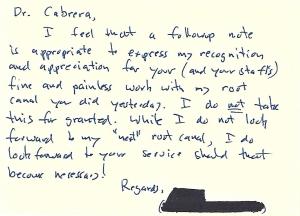 Dr. Cabrera,
I feel that a followup note
is appropriate to express my recognition
and appreciation for your (and your staff's)
fine and painless work with my root
canal you did yesterday. I do not take
this for granted. While I do not look
forward to my "next" root canal, I do
look forward to your service should that
become necessary!
Regards,